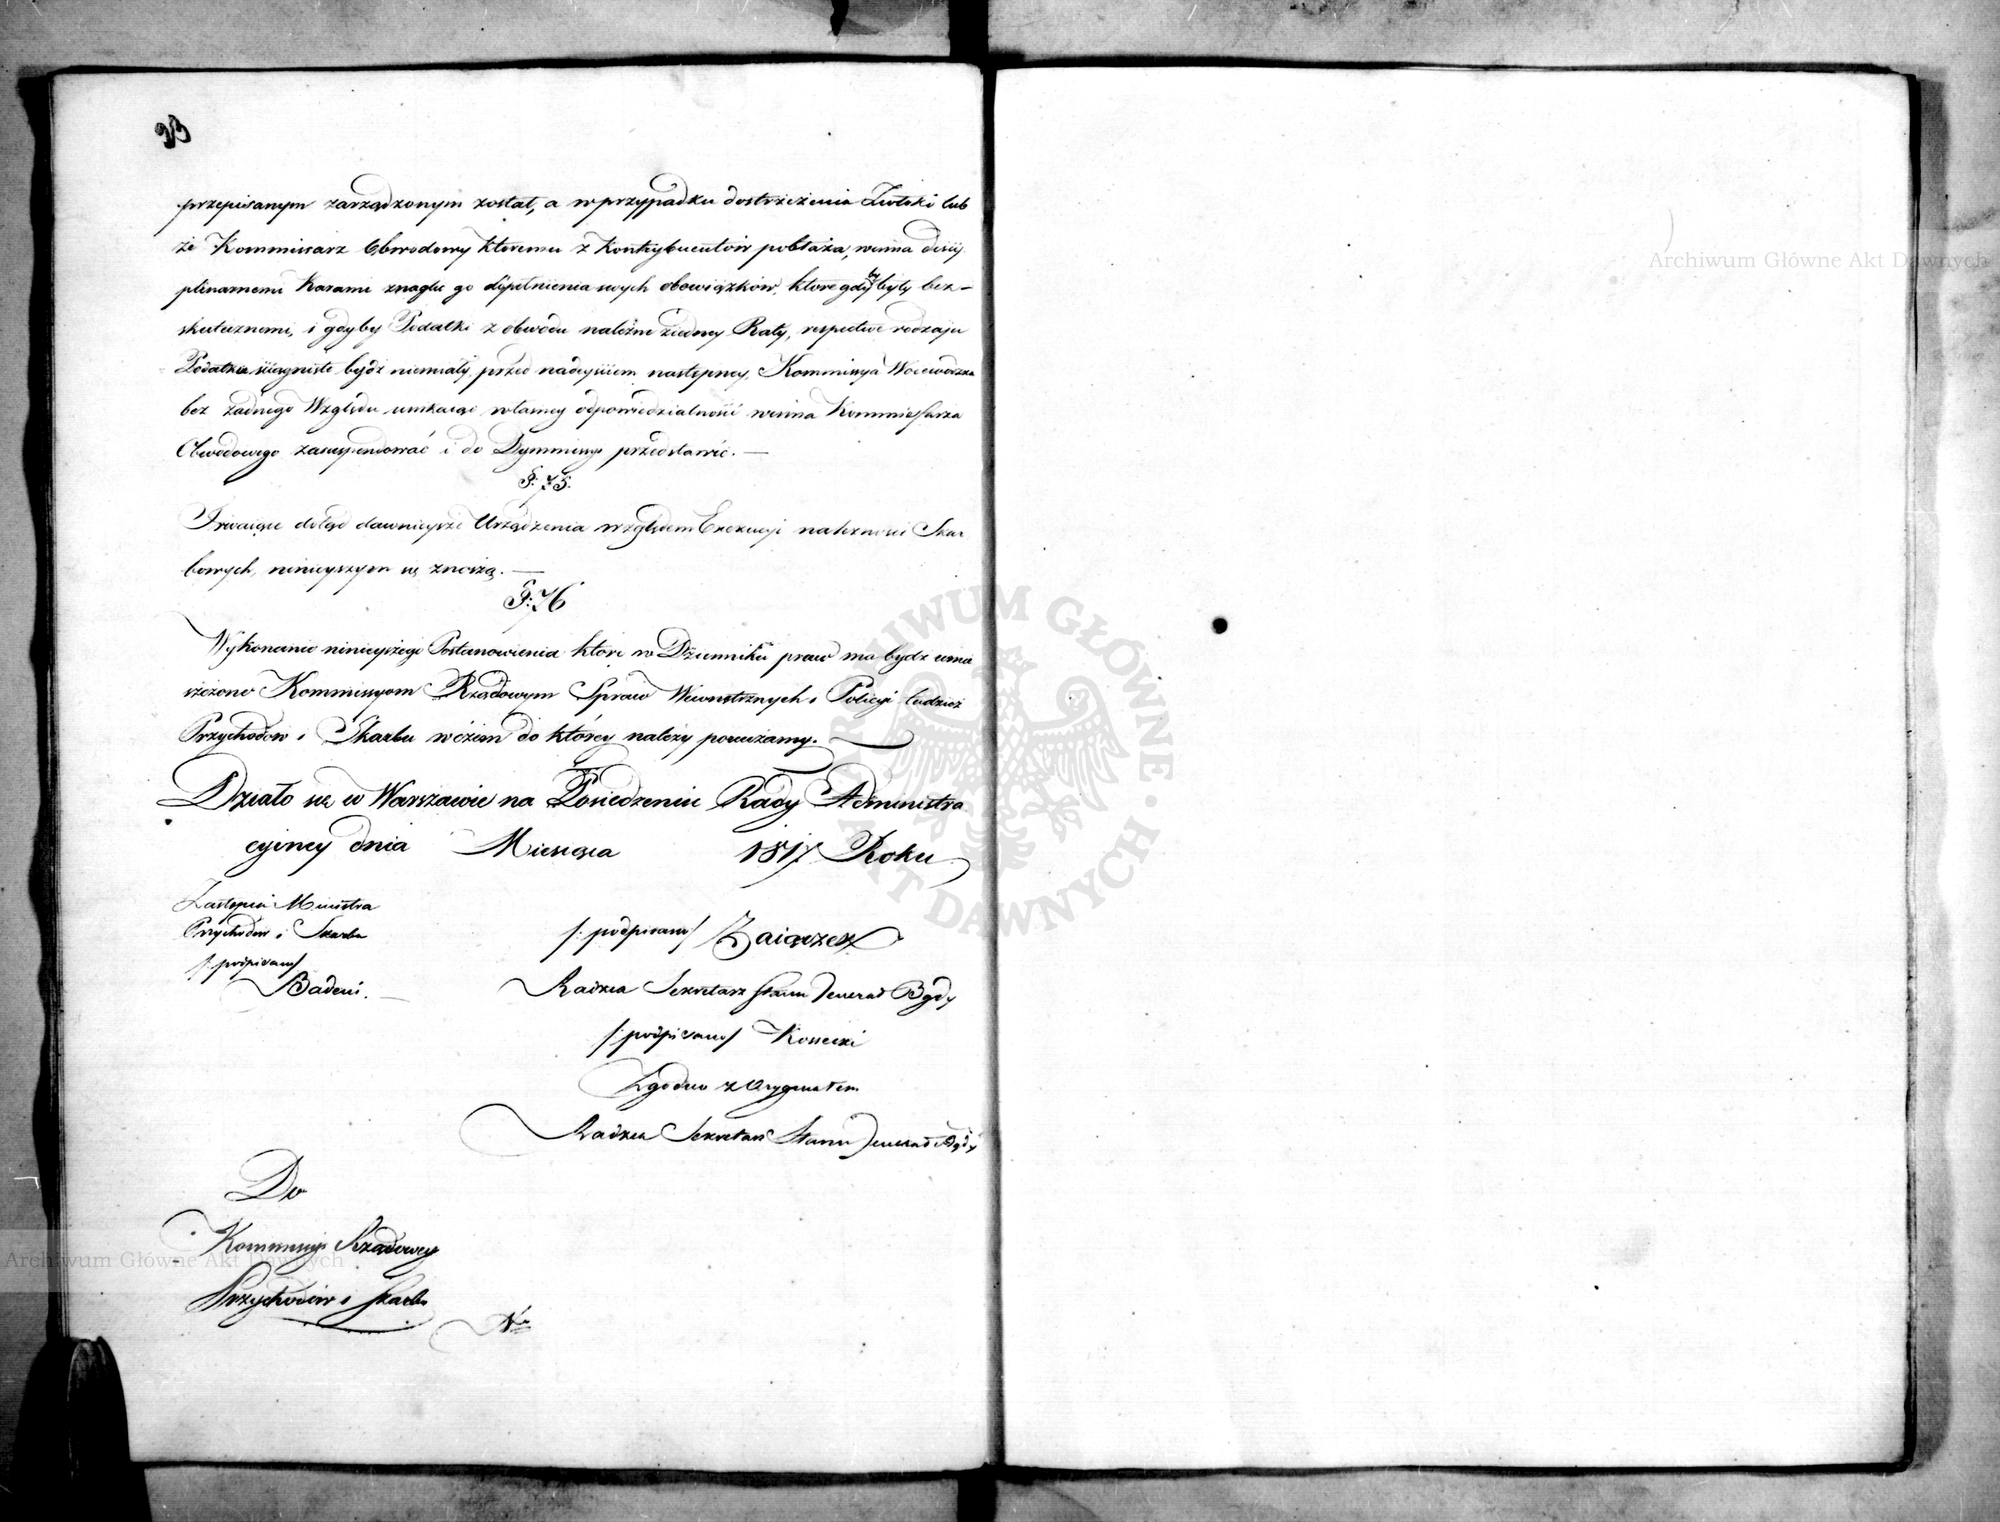 przepisanym zarządzonym został, a w przypadku dostrzeżenia Zwłoki lub
że Kommissarz Obwodowy ktoremu z Kontrybuentów pobłaża, winna discy
plinarnemi Karami znaglić go dopełnienia swych obowiązków, ktore gdy by były bez-
skutecznemi, i gdyby Podatki z obwodu należne zjedney Raty, respective rodzaju
Podatku ściągnięte bydź niemiały, przed nadeyściem następney, Kommissya Woiewódzka
bez żadnego Względu unikaiąc własney odpowiedzialności winna Kommissarza
Obwodowego zasuspendować i do Dymmissyi przedstawić. —
§: 75.
Trwaiące dotąd dawnieysze Urządzenia względem Exekucyi należności Skar
bowych, ninieyszym się znoszą. —
§: 76
Wykonanie ninieyszego Postanowienia które w Dzienniku praw ma bydz umie
szczone Kommissyom Rządowym Spraw Wewnętrznych i Policyi tudzież
Przychodów i Skarbu w czém do którey należy poruczamy. —
Działo się w Warszawie na Posiedzeniu Rady Administra
cyiney dnia Miesiąca 1817 Roku
Zastępca Ministra
Przychodów i Skarbu
/: podpisano/
Badeni. —
/: podpisano/ Zaiączek
Radzca Sekretarz Stanu Jenerał Brygdy
/: podpisano/ Kossecki
Zgodno z Oryginałem
Radzca Sekretarz Stanu Jenerał Brygdy
Do
Kommissyi Rządowey
Przychodów i Skarbu
Nro
Archiwum Główne Akt Dawnych
Archiwum Główne Akt Dawnych
ARCHIWUM GŁÓWNE AKT DAWNYCH